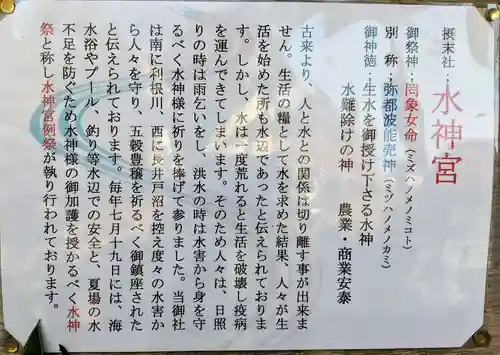 摂末社：水神宮
御祭神；罔象女命（ミズハノメノミコト）
別　称；弥都波能売神（ミヅハノメノカミ）
御神徳；生水を御授け下さる水神
水難除けの神　農業・商業安泰
古来より、人と水との関係は切り離す事が出来ま
せん。生活の糧として水を求めた結果、人々が生
活を始めた所も水辺であったと伝えられておりま
す。しかし、水は一度荒れると生活を破壊し疫病
を運んできてしまいます。そのため人々は、日照
りの時は雨乞いをし、洪水の時は水害から身を守
るべく水神様に祈りを捧げて参りました。当御社
は南に利根川、西に長井戸沼を控え度々の水害か
ら人々を守り、五穀豊穣を祈るべく御鎮座された
と伝えられております。毎年七月十九日には、海
水浴やプール、釣り等水辺での安全と、夏場の水
不足を防ぐため水神様の御加護を授かるべく水神
祭と称し水神宮例祭が執り行われております。